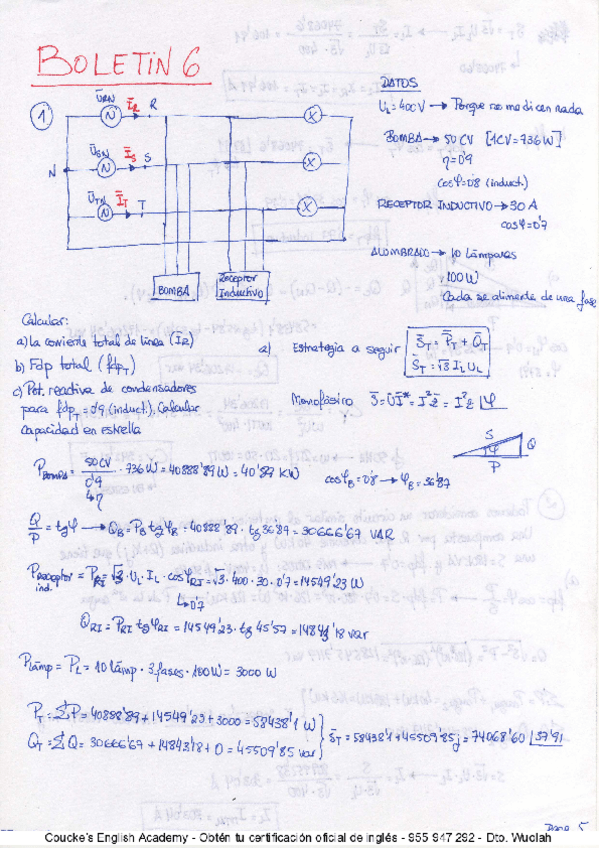 BOLETIN 6
1
U̅RN I̅R R
U̅SN I̅S S
N
U̅TN I̅T T
BOMBA
Receptor
Inductivo
DATOS
UL = 400V → Porque no me dicen nada
BOMBA → 50 CV [1CV = 736W]
η = 0'9
cosφ = 0'8 (induct.)
RECEPTOR INDUCTIVO → 30 A
cosφ = 0'7
ALUMBRADO → 10 lámparas
100W
Cada se alimente de una fase
Calcular:
a) La corriente total de línea (IR)
b) Fdp total (fdpT)
c) Pot. reactiva de condensadores
para fdpT = 0'9 (induct.), Calcular
capacidad en estrella
a) Estrategia a seguir
S̅T = P̅T + Q̅T
S̅T = √3 IL UL
Monofásico S̅ = U̅I̅* = I²z̅ = I²z |φ
S
φ
Q
P
PBOMBA = 50CV / 0'9 · 736W = 40888'89W = 40'89 KW
↳ η
cosφB = 0'8 → φB = 36'87
Q/P = tgφ → QB = PB tgφB = 40888'89 · tg 36'87 = 30666'67 VAR
Preceptor ind. = PRI = √3 · UL · IL · cosφRI = √3 · 400 · 30 · 0'7 = 14549'23 W
↳ 0'7
QRI = PRI tgφRI = 14549'23 · tg 45'57 = 14843'18 var
Plámp = PL = 10 lámp · 3 fases · 100W = 3000 W
PT = ΣP = 40888'89 + 14549'23 + 3000 = 58438'1 W
QT = ΣQ = 30666'67 + 14843'18 + 0 = 45509'85 var
S̅T = 58438'1 + 45509'85j = 74068'60 |37'91
Coucke's English Academy - Obtén tu certificación oficial de inglés - 955 947 292 - Dto. Wuolah